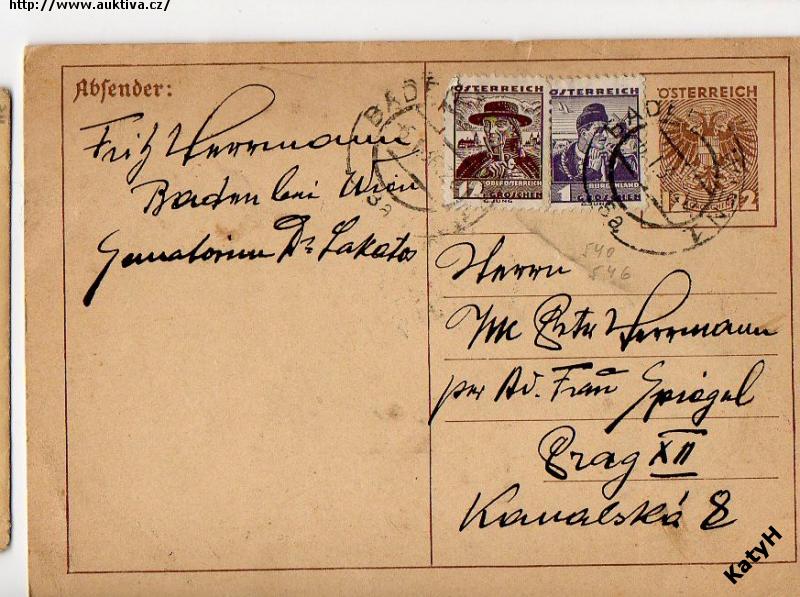 http://www.auktiva.cz/
Absender:
Fritz Herrmann
Baden bei Wien
Sanatorium Dr Lakatos
ÖSTERREICH
12 OBERÖSTERREICH
GROSCHEN
G. JUNG
ÖSTERREICH
BURGENLAND
1 GROSCHEN
ÖSTERREICH
12
BADEN
BADEN
540
546
Herrn
Herrmann
per Ad. Frau Spiegel
Prag XII
Kanalská 8
KatyH